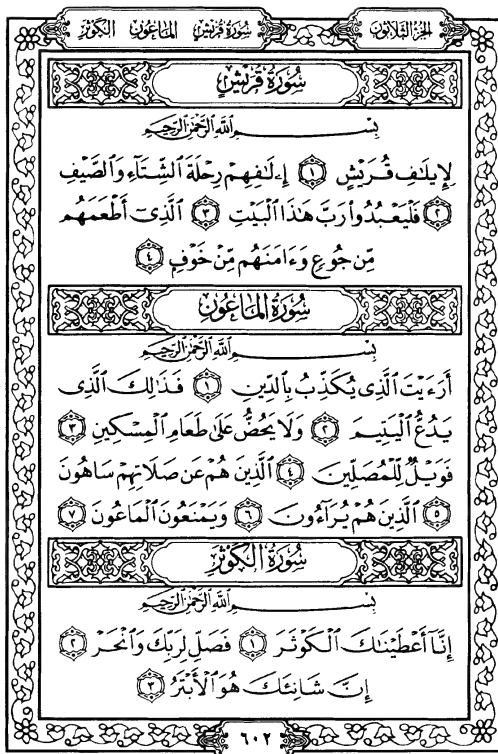 سُورَةُ قُرَيْشٍ الماعون الكوثر الجزء الثلاثون
سُورَةُ قُرَيْشٍ
بِسْمِ اللَّهِ الرَّحْمَٰنِ الرَّحِيمِ
لِإِيلَٰفِ قُرَيْشٍ ١ إِۦلَٰفِهِمْ رِحْلَةَ ٱلشِّتَآءِ وَٱلصَّيْفِ
٢ فَلْيَعْبُدُوا۟ رَبَّ هَٰذَا ٱلْبَيْتِ ٣ ٱلَّذِىٓ أَطْعَمَهُم
مِّن جُوعٍ وَءَامَنَهُم مِّنْ خَوْفٍ ٤
سُورَةُ المَاعُونِ
بِسْمِ اللَّهِ الرَّحْمَٰنِ الرَّحِيمِ
أَرَءَيْتَ ٱلَّذِى يُكَذِّبُ بِٱلدِّينِ ١ فَذَٰلِكَ ٱلَّذِى
يَدُعُّ ٱلْيَتِيمَ ٢ وَلَا يَحُضُّ عَلَىٰ طَعَامِ ٱلْمِسْكِينِ ٣
فَوَيْلٌ لِّلْمُصَلِّينَ ٤ ٱلَّذِينَ هُمْ عَن صَلَاتِهِمْ سَاهُونَ
٥ ٱلَّذِينَ هُمْ يُرَآءُونَ ٦ وَيَمْنَعُونَ ٱلْمَاعُونَ ٧
سُورَةُ الكَوْثَرِ
بِسْمِ اللَّهِ الرَّحْمَٰنِ الرَّحِيمِ
إِنَّآ أَعْطَيْنَٰكَ ٱلْكَوْثَرَ ١ فَصَلِّ لِرَبِّكَ وَٱنْحَرْ ٢
إِنَّ شَانِئَكَ هُوَ ٱلْأَبْتَرُ ٣
٦٠٢